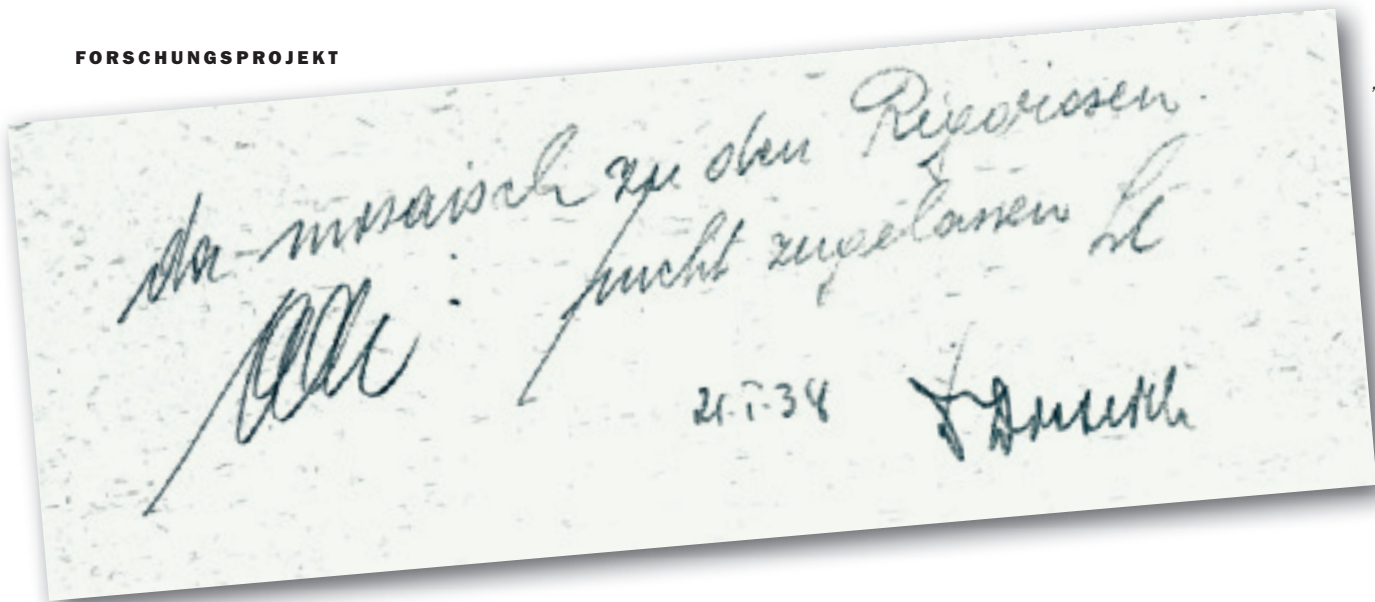 FORSCHUNGSPROJEKT
da mosaisch zu den Rigorosen
nicht zugelassen
21.I.38